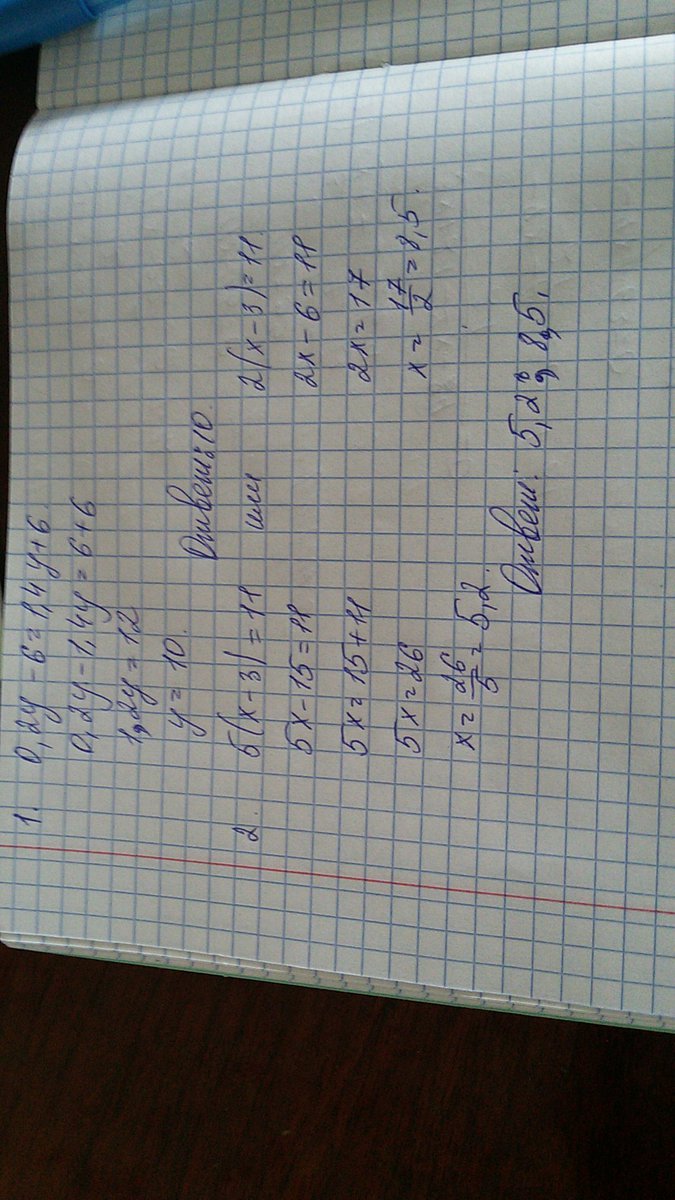 1. 0,2y - 6 = 1,4y + 6.
0,2y - 1,4y = 6+6
1,2y = 12
y = 10.
Ответ: 10.
2. 5(x-3) = 11 или 2(x-3)=11.
5x-15=11 2x-6=11
5x=15+11 2x=17
5x=26 x = 17/2 = 8,5.
x = 26/5 = 5,2.
Ответ: 5,2; 8,5.